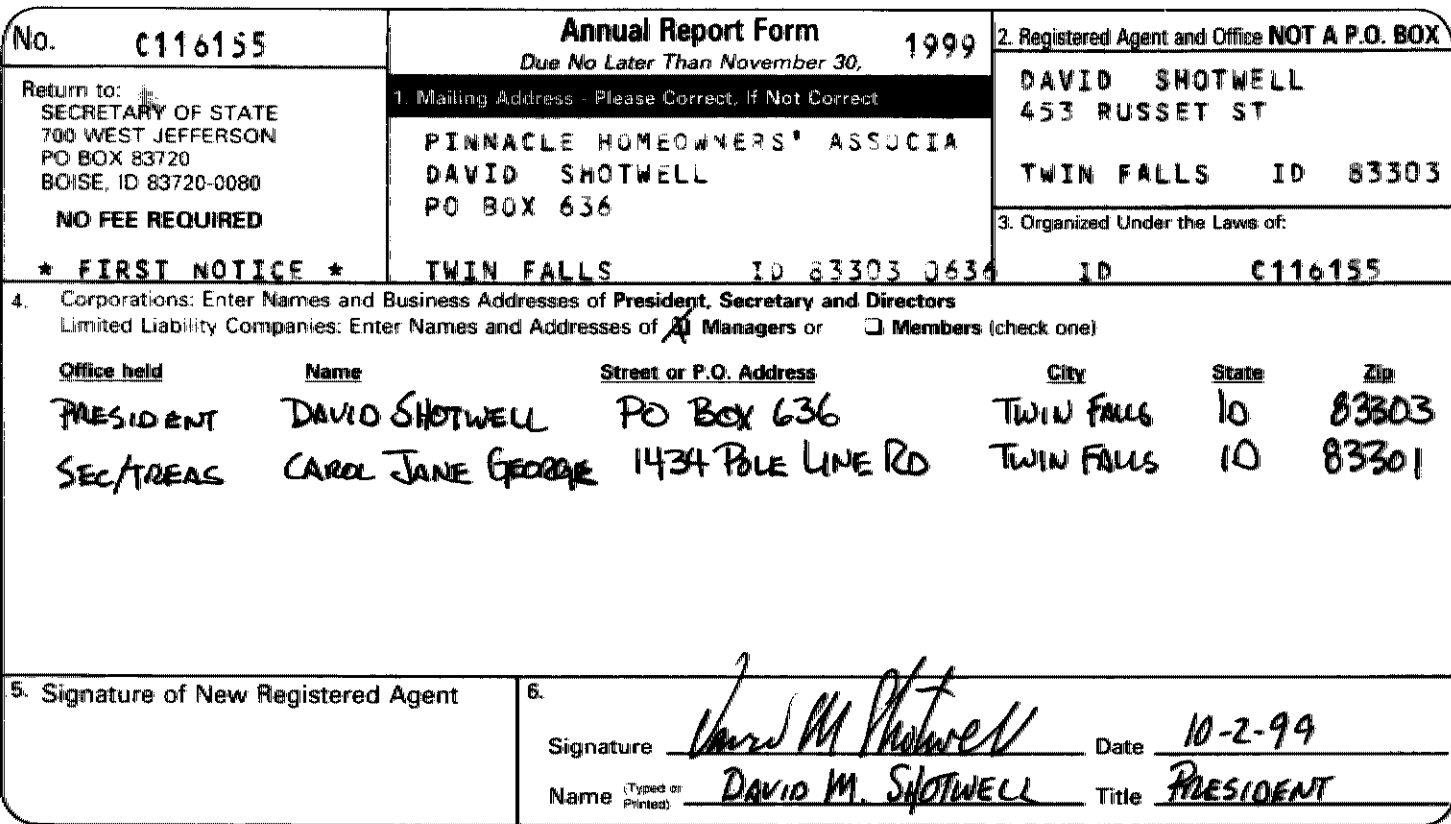 No. C116155
Return to:
SECRETARY OF STATE
700 WEST JEFFERSON
PO BOX 83720
BOISE, ID 83720-0080
NO FEE REQUIRED
* FIRST NOTICE *
Annual Report Form 1999
Due No Later Than November 30,
1. Mailing Address - Please Correct, If Not Correct
PINNACLE HOMEOWNERS' ASSOCIA
DAVID SHOTWELL
PO BOX 636
TWIN FALLS ID 83303 0636
2. Registered Agent and Office NOT A P.O. BOX
DAVID SHOTWELL
453 RUSSET ST
TWIN FALLS ID 83303
3. Organized Under the Laws of:
ID C116155
4. Corporations: Enter Names and Business Addresses of President, Secretary and Directors
Limited Liability Companies: Enter Names and Addresses of Managers or Members (check one)
Office held Name Street or P.O. Address City State Zip
PRESIDENT DAVID SHOTWELL PO BOX 636 TWIN FALLS ID 83303
SEC/TREAS CAROL JANE GEORGE 1434 POLE LINE RD TWIN FALLS ID 83301
5. Signature of New Registered Agent
6.
Signature David M Shotwell Date 10-2-99
Name (Typed or Printed) DAVID M. SHOTWELL Title PRESIDENT